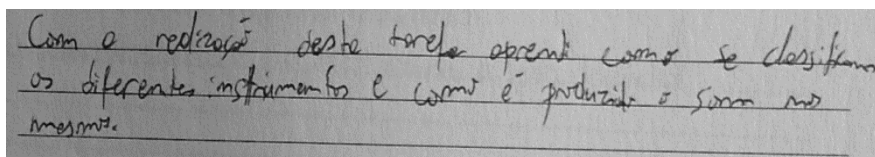 Com a realização desta tarefa aprendi como se classificam
os diferentes instrumentos e como é produzido o som nos
mesmos.